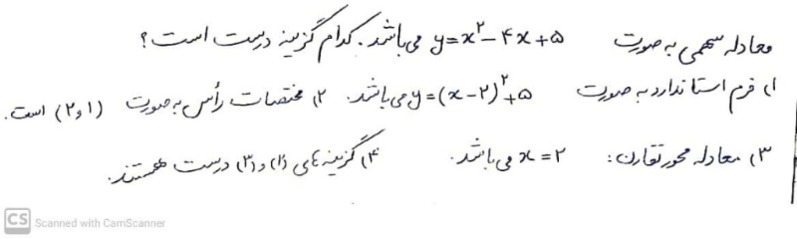 معادله سهمی به صورت y=x²-۴x+۵ می باشد. کدام گزینه درست است؟
۱) فرم استاندارد به صورت y=(x-۲)²+۵ می باشد. ۲) مختصات رأس به صورت (۲,۱) است.
۳) معادله محور تقارن: x=۲ می باشد. ۴) گزینه های (۲) و (۳) درست هستند.
CS Scanned with CamScanner